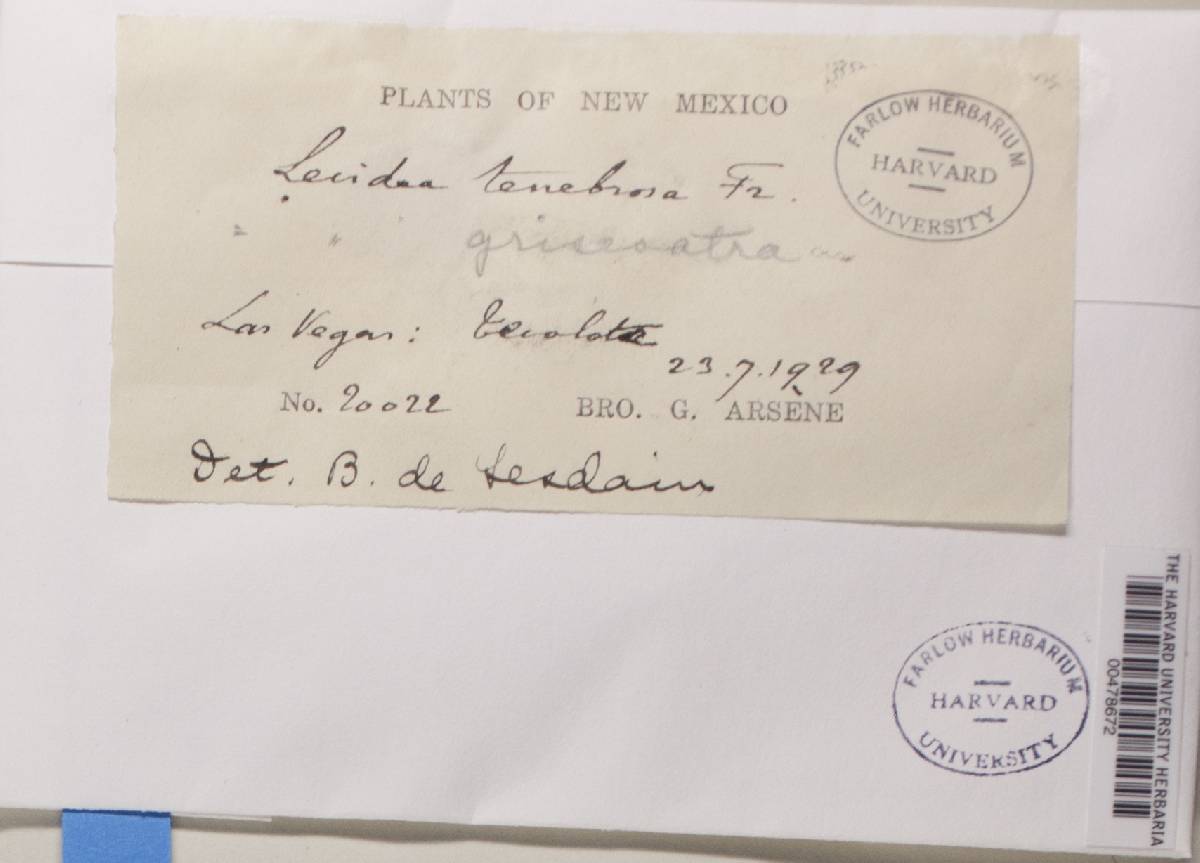 PLANTS OF NEW MEXICO
Lecidea tenebrosa Fr.
" " griseoatra
Las Vegas: Tecolote
23.7.1929
No. 20022 BRO. G. ARSÈNE
Det. B. de Lesdain
FARLOW HERBARIUM
HARVARD
UNIVERSITY
FARLOW HERBARIUM
HARVARD
UNIVERSITY
THE HARVARD UNIVERSITY HERBARIA
00478672